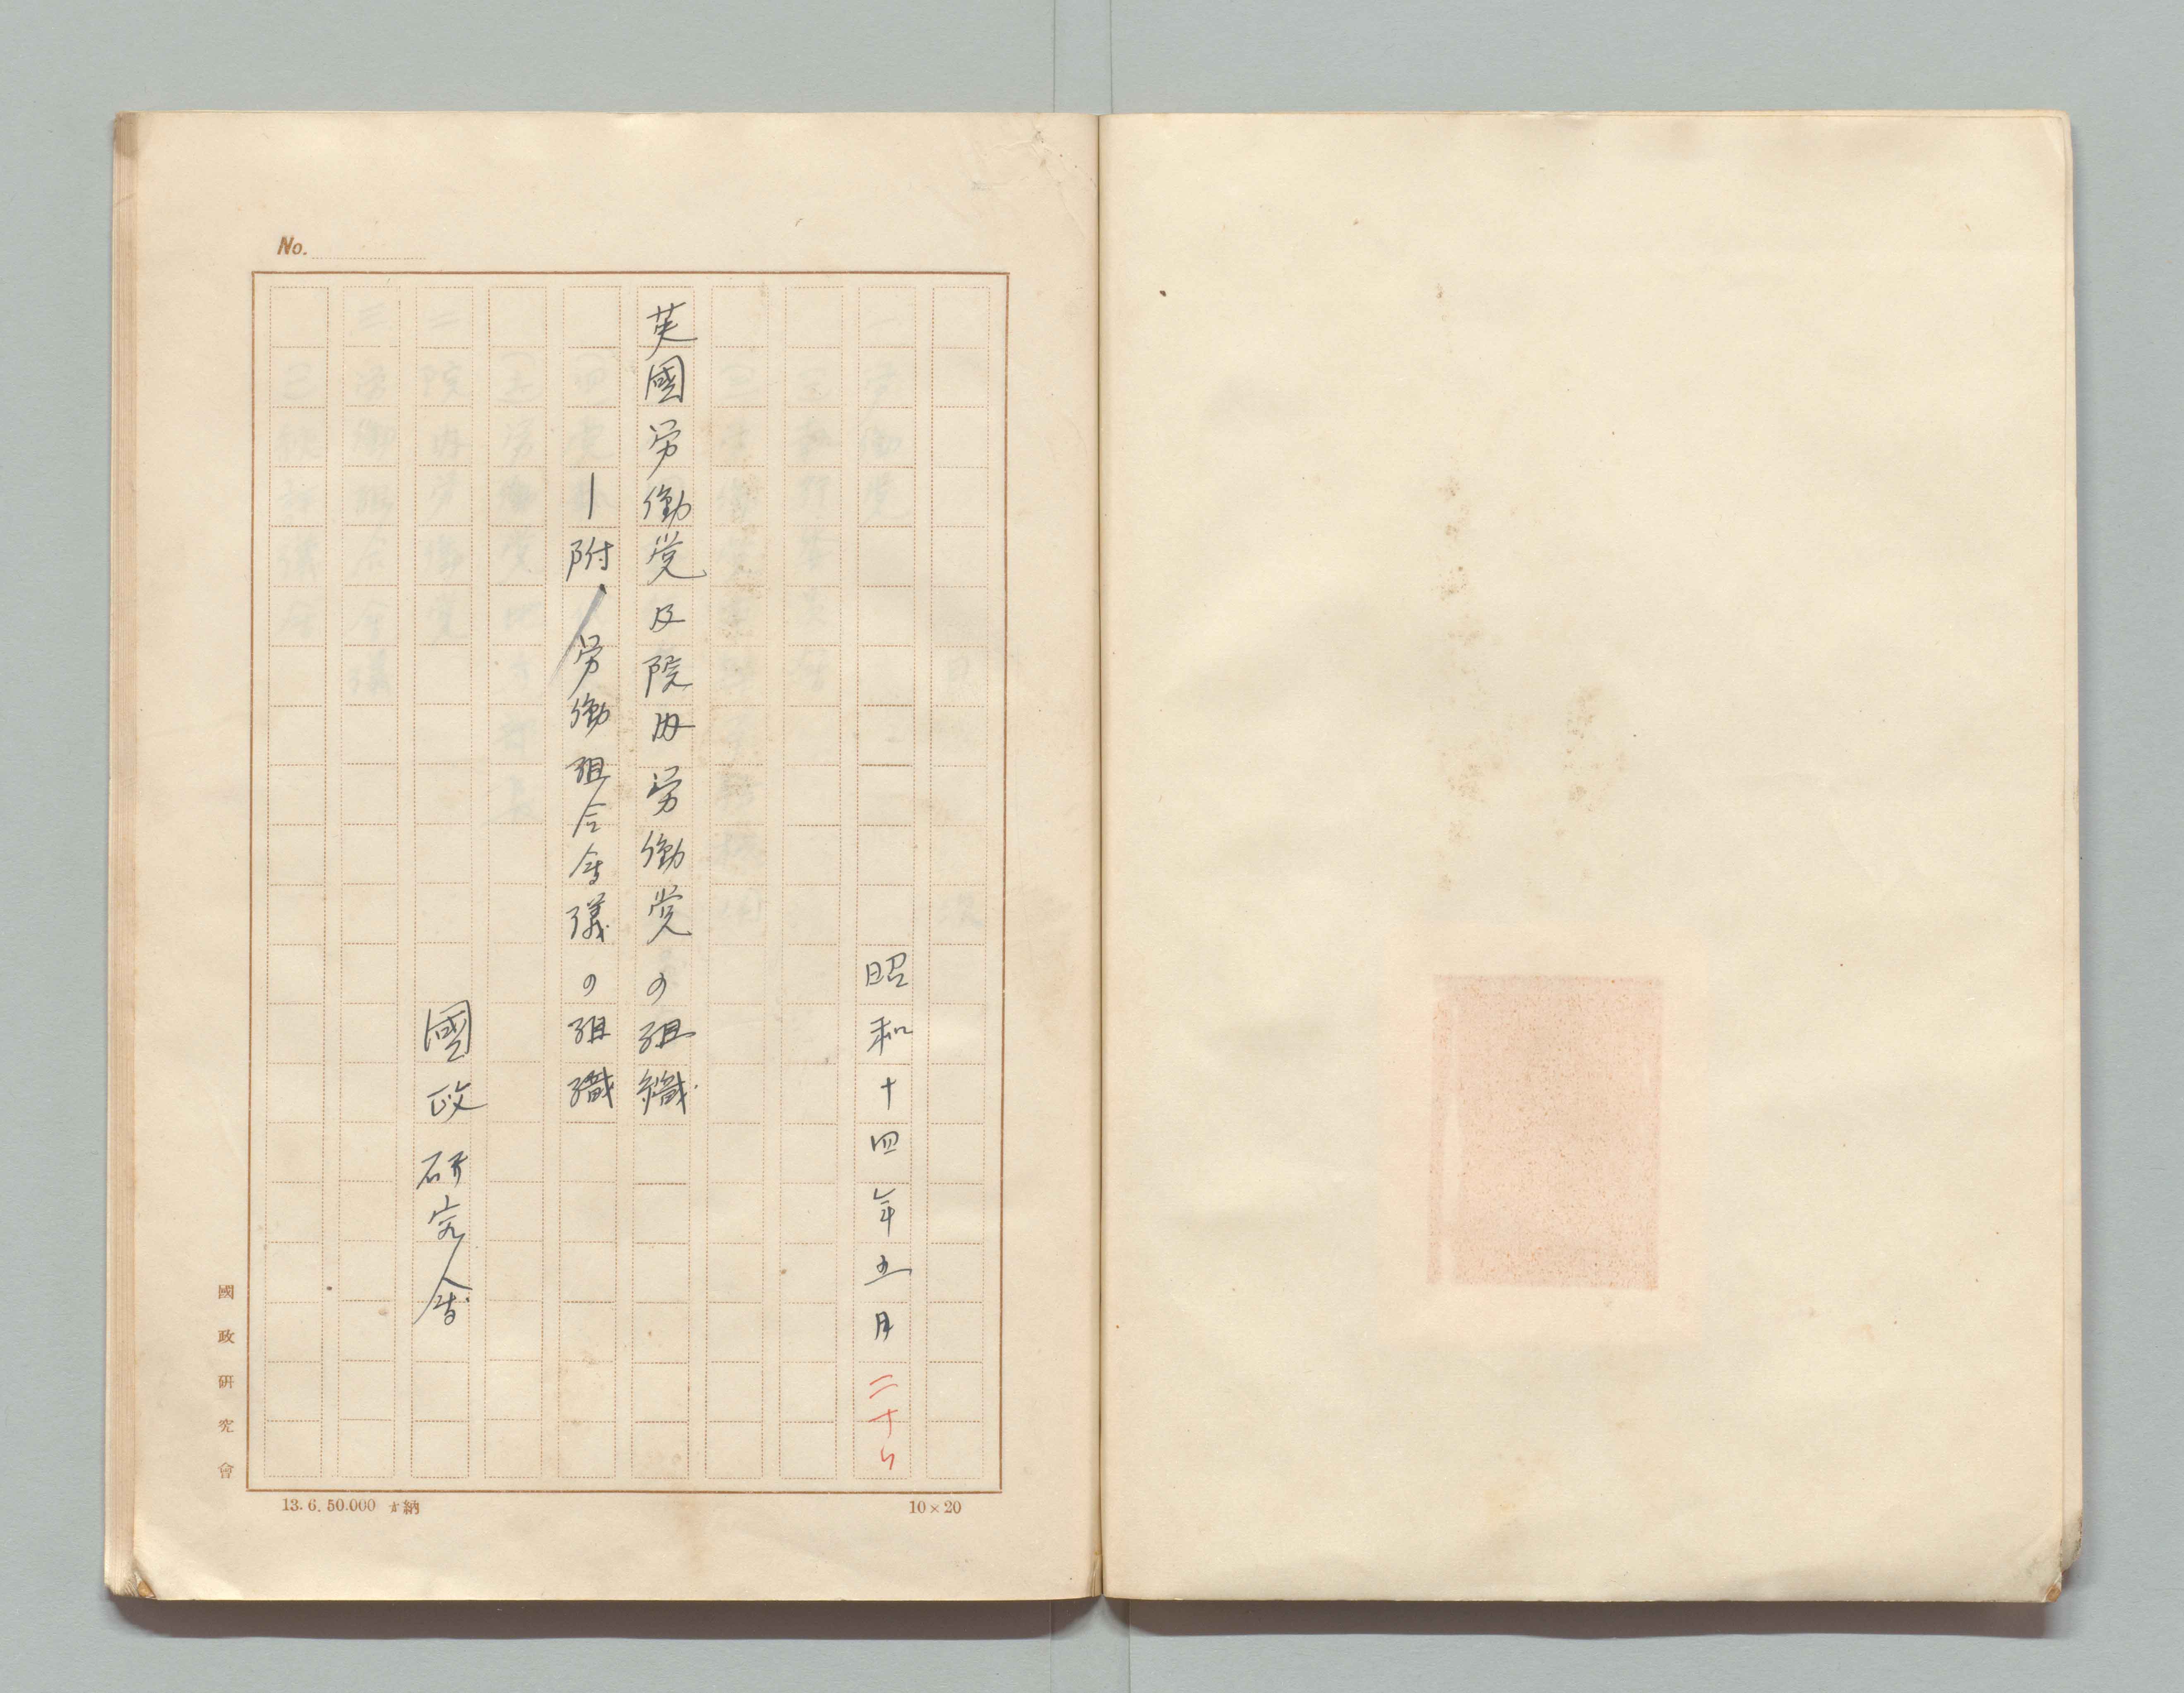 No.
昭和十四年五月二十
英國労働党及院内労働党の組織
―附、労働組合会議の組織
國政研究会
國政研究會
13. 6. 50.000 納
10×20